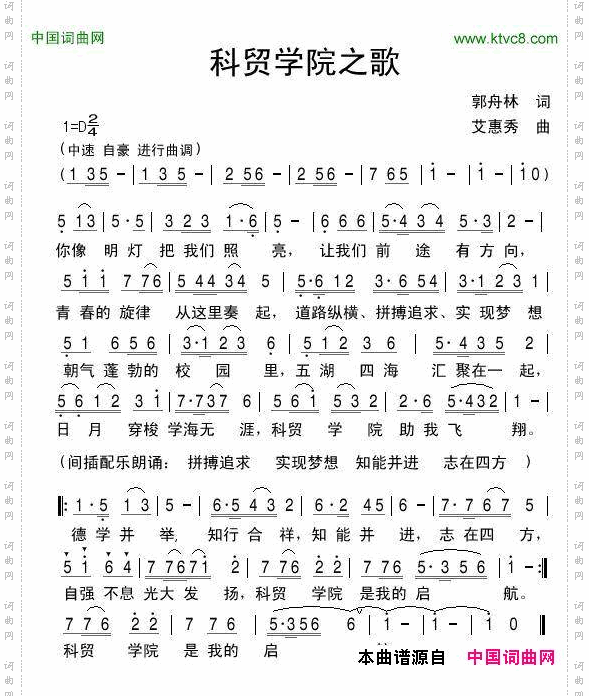 中国词曲网 www.ktvc8.com
科贸学院之歌
郭舟林 词
1=D2/4 艾惠秀 曲
(中速 自豪 进行曲调)
(1 35 - | 1 35 - | 2 56 - | 2 56 - | 7 65 | 1 - | 1 - | 10)
5 13 | 5·5 | 3 23 | 1·6 | 5 - | 6 66 | 5·4 34 | 5·3 | 2 - |
你像 明灯 把我们照 亮, 让我们前 途 有方向,
5 11 | 7 76 | 5 44 34 | 5 - | 5·6 12 | 3·6 43 | 3·1 23 | 1 - |
青春的旋律 从这里奏 起, 道路纵横、拼搏追求、实现梦 想
5 1 | 6 56 | 3·1 23 | 1 - | 3·1 23 | 6·5 34 | 6·5 23 | 5 - |
朝气蓬勃的 校 园 里, 五湖 四海 汇 聚在一起,
56 12 | 3 31 | 7·737 | 6 - | 5 61 | 5 32 | 2·6 | 5·432 | 5 - |
日月 穿梭 学海无 涯, 科贸 学 院 助我飞 翔。
(间插配乐朗诵: 拼搏追求 实现梦想 知能并进 志在四方)
|: 1·5 | 13 | 5 - | 6·5 43 | 2 - | 6·2 45 | 6 - | 7·7 67 | 5 - |
德学并 举, 知行合 祥, 知能并 进, 志在四方,
5 1 | 6 4 | 7 767 1 | 2 - | 7 76 | 2 22 | 5·3 56 | 1 - :|
自强 不息 光大发 扬, 科贸 学院 是我的启 航。
7 76 | 2 22 | 5·356 | 6 - | 1 - | 1 - | 1 0 |
科贸 学院 是 我的 启
本曲谱源自 中国词曲网
词曲网
词曲网
词曲网
词曲网
词曲网
词曲网